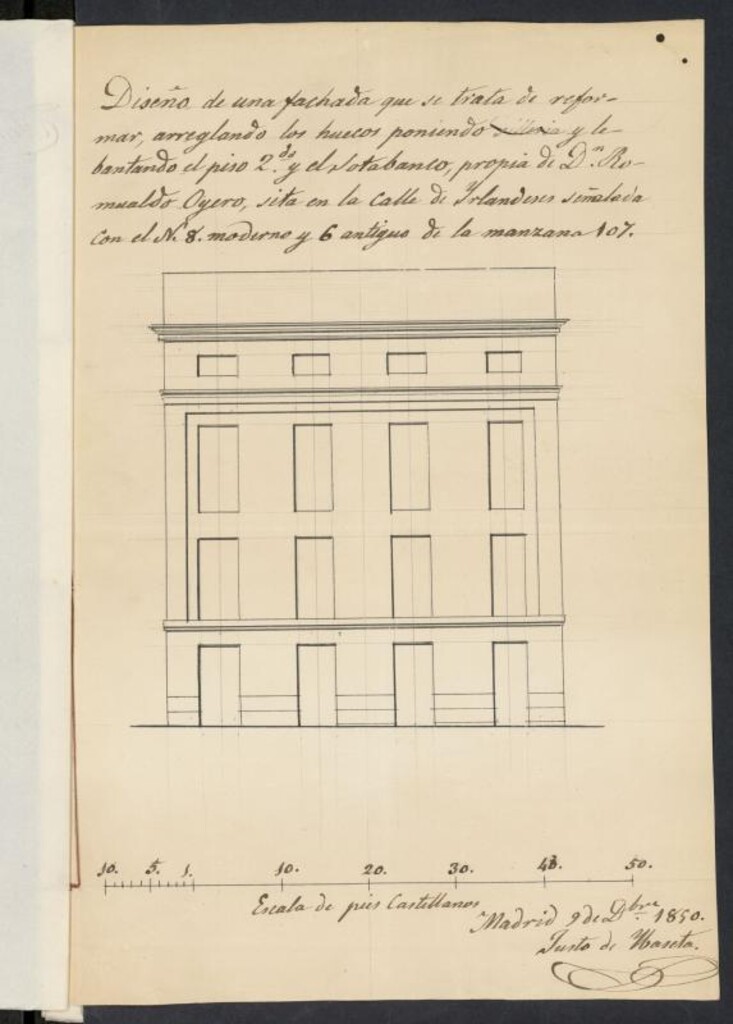 Diseño de una fachada que se trata de refor-
mar, arreglando los huecos poniendo y le-
bantando el piso 2.do y el sotabanco, propia de D.n Ro-
mualdo Oyero, sita en la calle de Yrlandeses señalada
con el N.º 8. moderno y 6 antiguo de la manzana 107.
10. 5. 1. 10. 20. 30. 40. 50.
Escala de pies Castellanos
Madrid 9 de D.bre 1850.
Justo de